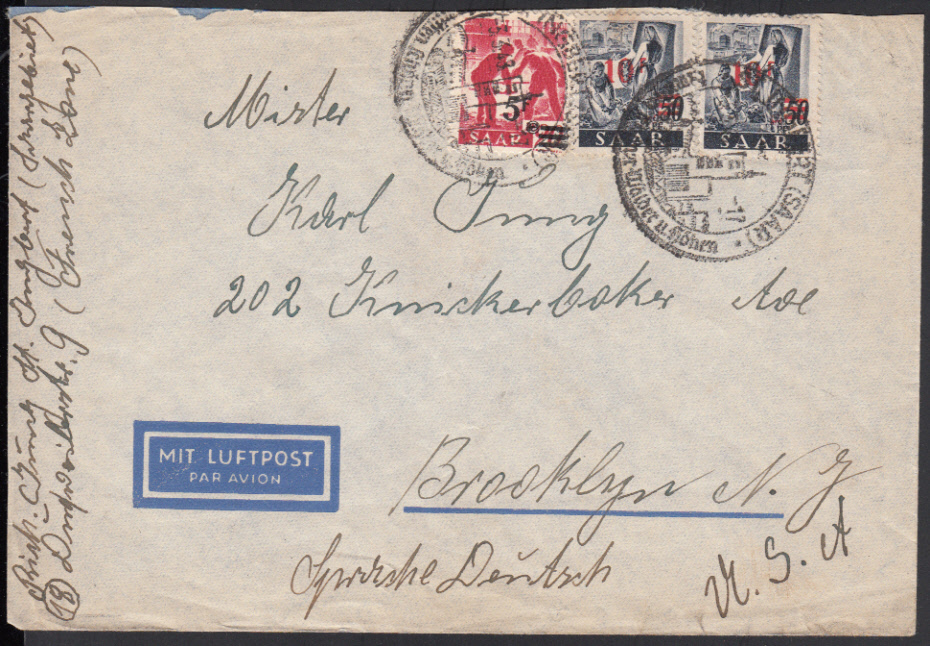 Mister
Karl Jung
202 Knickerboker Ave
Brooklyn N. Y
U. S. A
Sprache Deutsch
MIT LUFTPOST
PAR AVION
5F
SAAR
10F
50
SAAR
10F
50
SAAR
(SAAR)
Wälder u. Höhen
u. Höhen
Jung St. Ingbert (Saargebiet)
(18) 9 (French Zone)